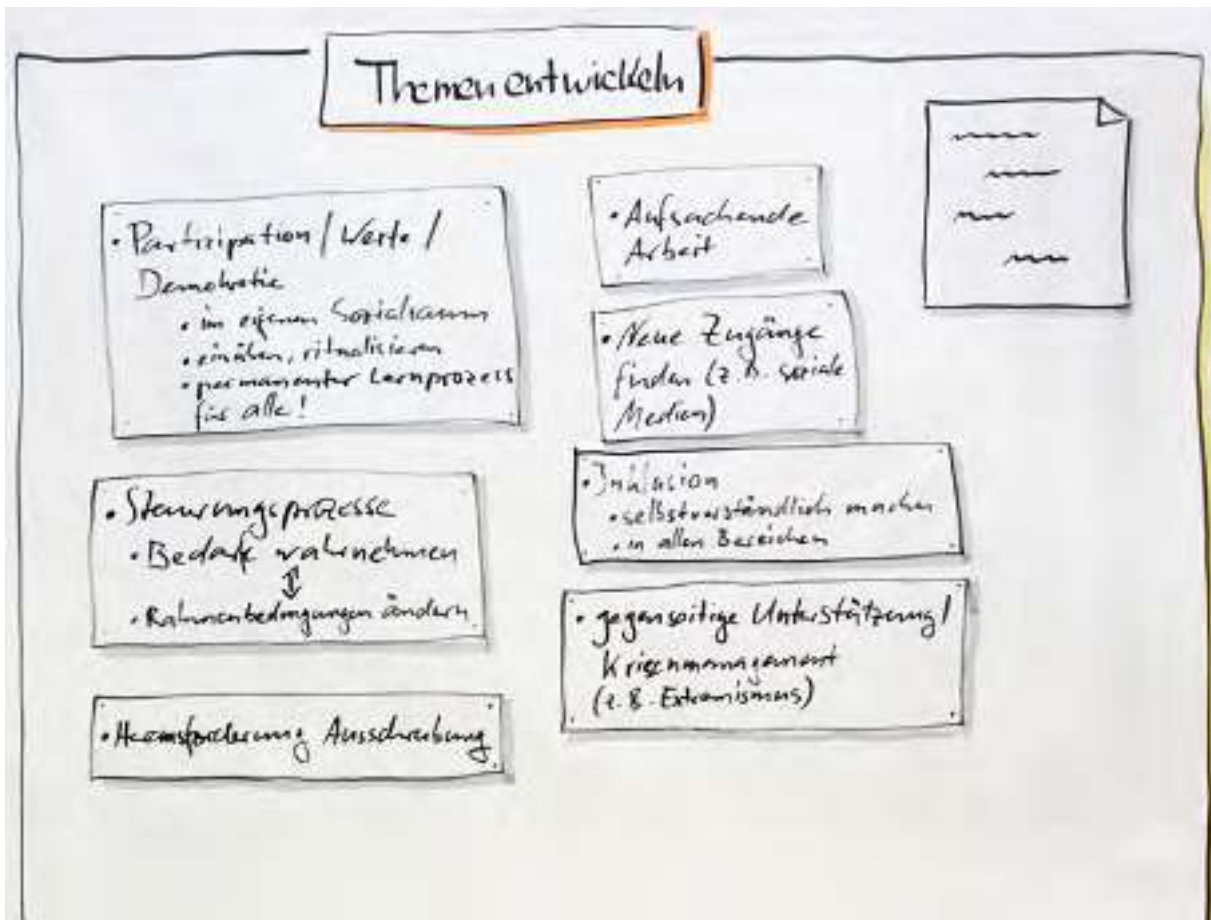 Themen entwickeln
• Partizipation / Werte /
Demokratie
• im eigenen Sozialraum
• einüben, ritualisieren
• permanenter Lernprozess
für alle!
• Steuerungsprozesse
• Bedarfe wahrnehmen
• Rahmenbedingungen ändern
• Herausforderung Ausschreibung
• Aufsuchende
Arbeit
• Neue Zugänge
finden (z.B. soziale
Medien)
• Inklusion
• selbstverständlich machen
• in allen Bereichen
• gegenseitige Unterstützung /
Krisenmanagement
(z.B. Extremismus)